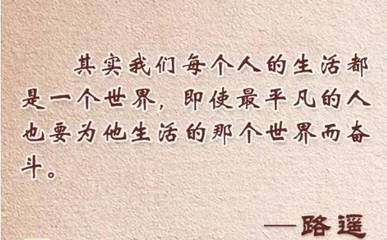 其实我们每个人的生活都
是一个世界，即使最平凡的人
也要为他生活的那个世界而奋
斗。
—路遥